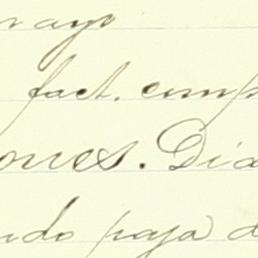 mayo
fact. comp
ones. Dia
ndo paja d